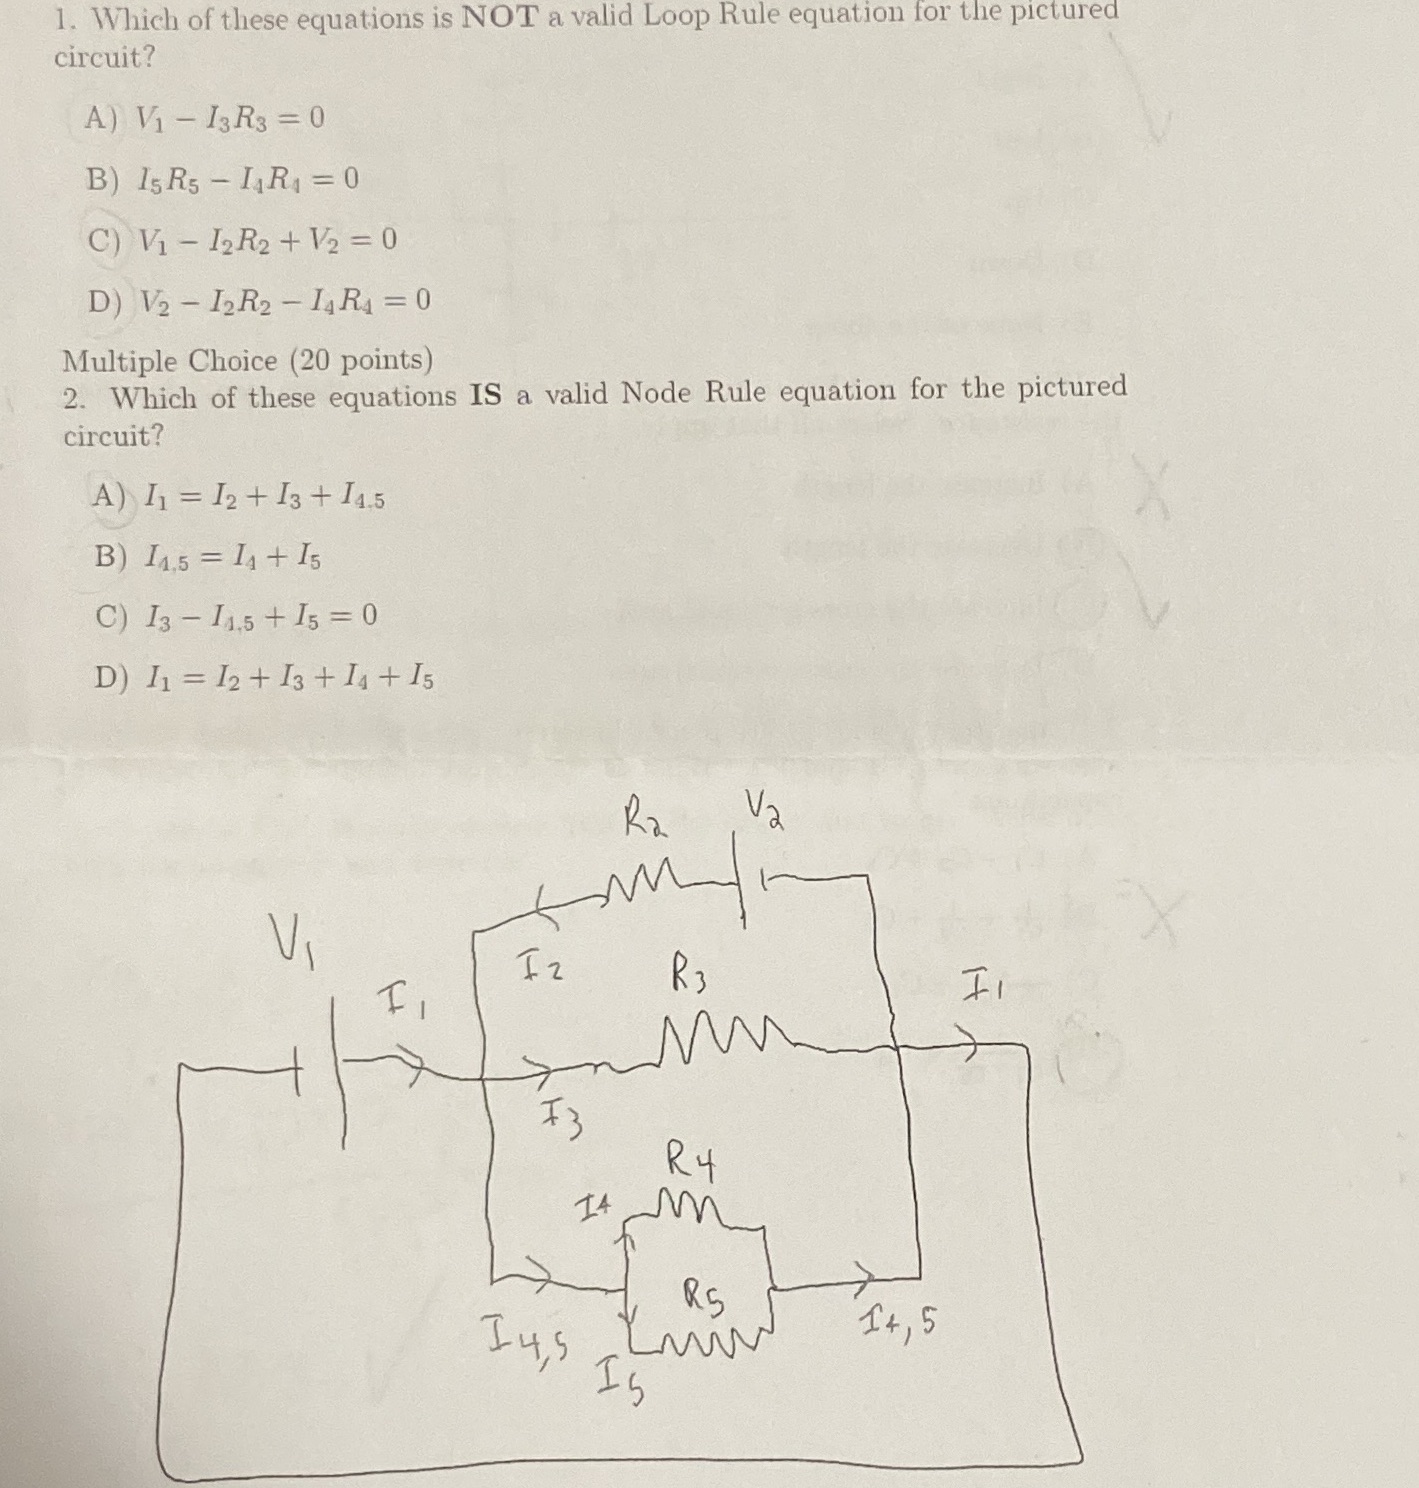 1. Which of these equations is NOT a valid Loop Rule equation for the pictured
circuit?
A) V₁ − I₃R₃ = 0
B) I₅R₅ − I₄R₄ = 0
C) V₁ − I₂R₂ + V₂ = 0
D) V₂ − I₂R₂ − I₄R₄ = 0
Multiple Choice (20 points)
2. Which of these equations IS a valid Node Rule equation for the pictured
circuit?
A) I₁ = I₂ + I₃ + I₄.₅
B) I₄,₅ = I₄ + I₅
C) I₃ − I₄,₅ + I₅ = 0
D) I₁ = I₂ + I₃ + I₄ + I₅
R₂ V₂
V₁
I₂
R₃
I₁
I₁
I₃
R4
I4
R5
I4,5
I4,5
I5